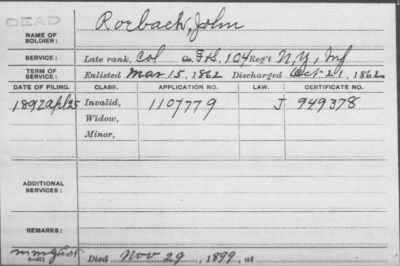 DEAD
Rorback, John
NAME OF SOLDIER:
SERVICE: Late rank, Col Co. F&S, 104 Reg't N.Y. Inf
TERM OF SERVICE: Enlisted Mar 15, 1862 Discharged Oct 21, 1862
DATE OF FILING. CLASS. APPLICATION NO. LAW. CERTIFICATE NO.
1892 Apl 25 Invalid, 1107779 J 949378
Widow,
Minor,
ADDITIONAL SERVICES:
REMARKS:
Died Nov 29, 1899, at